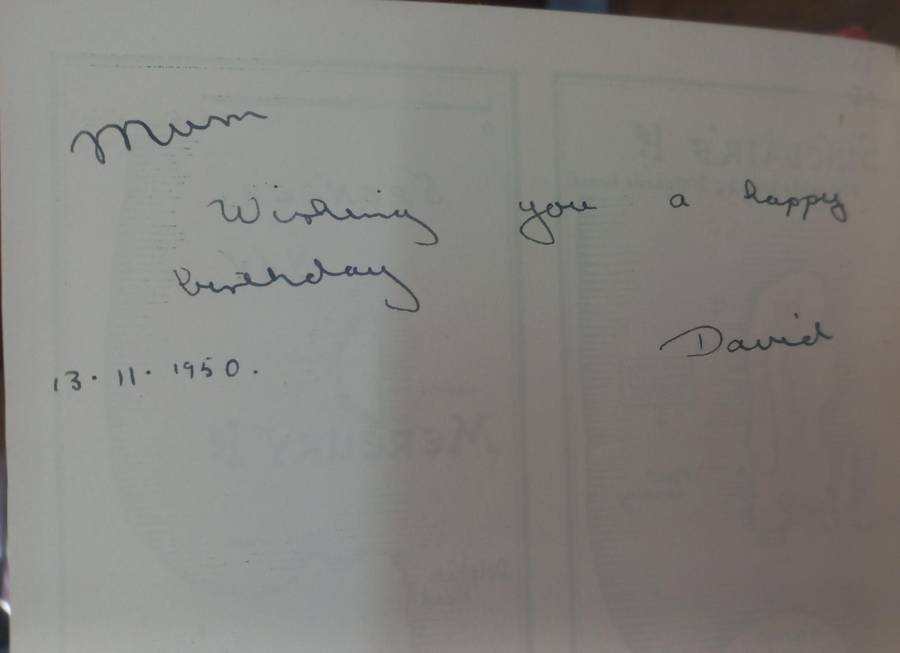 Mum
Wishing you a happy
birthday
David
13.11.1950.